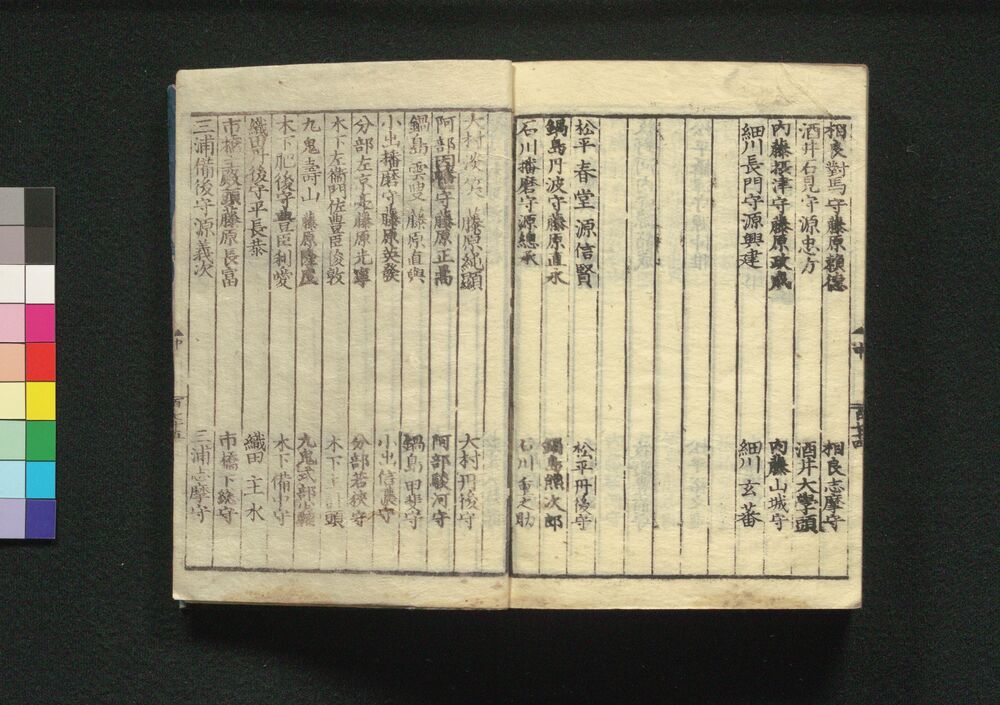 相良對馬守藤原頼徳　相良志摩守
酒井石見守源忠方　酒井大學頭
内藤摂津守藤原政成　内藤山城守
細川長門守源興建　細川玄蕃
松平春堂源信賢　松平丹後守
鍋島丹波守藤原直永　鍋島熊次郎
石川播磨守源總承　石川之助
大村藤原純顯　大村丹後守
阿部因幡守藤原正暠　阿部駿河守
鍋島雲叟藤原直與　鍋島甲斐守
小出播磨守藤原英發　小出信濃守
分部左京亮藤原光寧　分部若狭守
木下左衛門佐豊臣俊敦　木下頭
九鬼壽山藤原隆度　九鬼式部少輔
木下肥後守豊臣利愛　木下備中守
織田後守平長恭　織田主水
市橋主殿頭藤原長富　市橋下総守
三浦備後守源義次　三浦志摩守
中
中